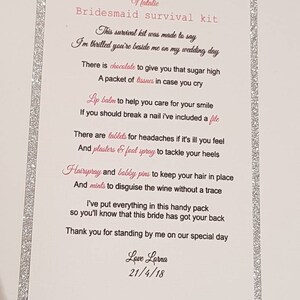 Natalie
Bridesmaid survival kit
This survival kit was made to say
I'm thrilled you're beside me on my wedding day
There is chocolate to give you that sugar high
A packet of tissues in case you cry
Lip balm to help you care for your smile
If you should break a nail i've included a file
There are tablets for headaches if it's ill you feel
And plasters & foot spray to tackle your heels
Hairspray and bobby pins to keep your hair in place
And mints to disguise the wine without a trace
I've put everything in this handy pack
so you'll know that this bride has got your back
Thank you for standing by me on our special day
Love Lorna
21/4/18